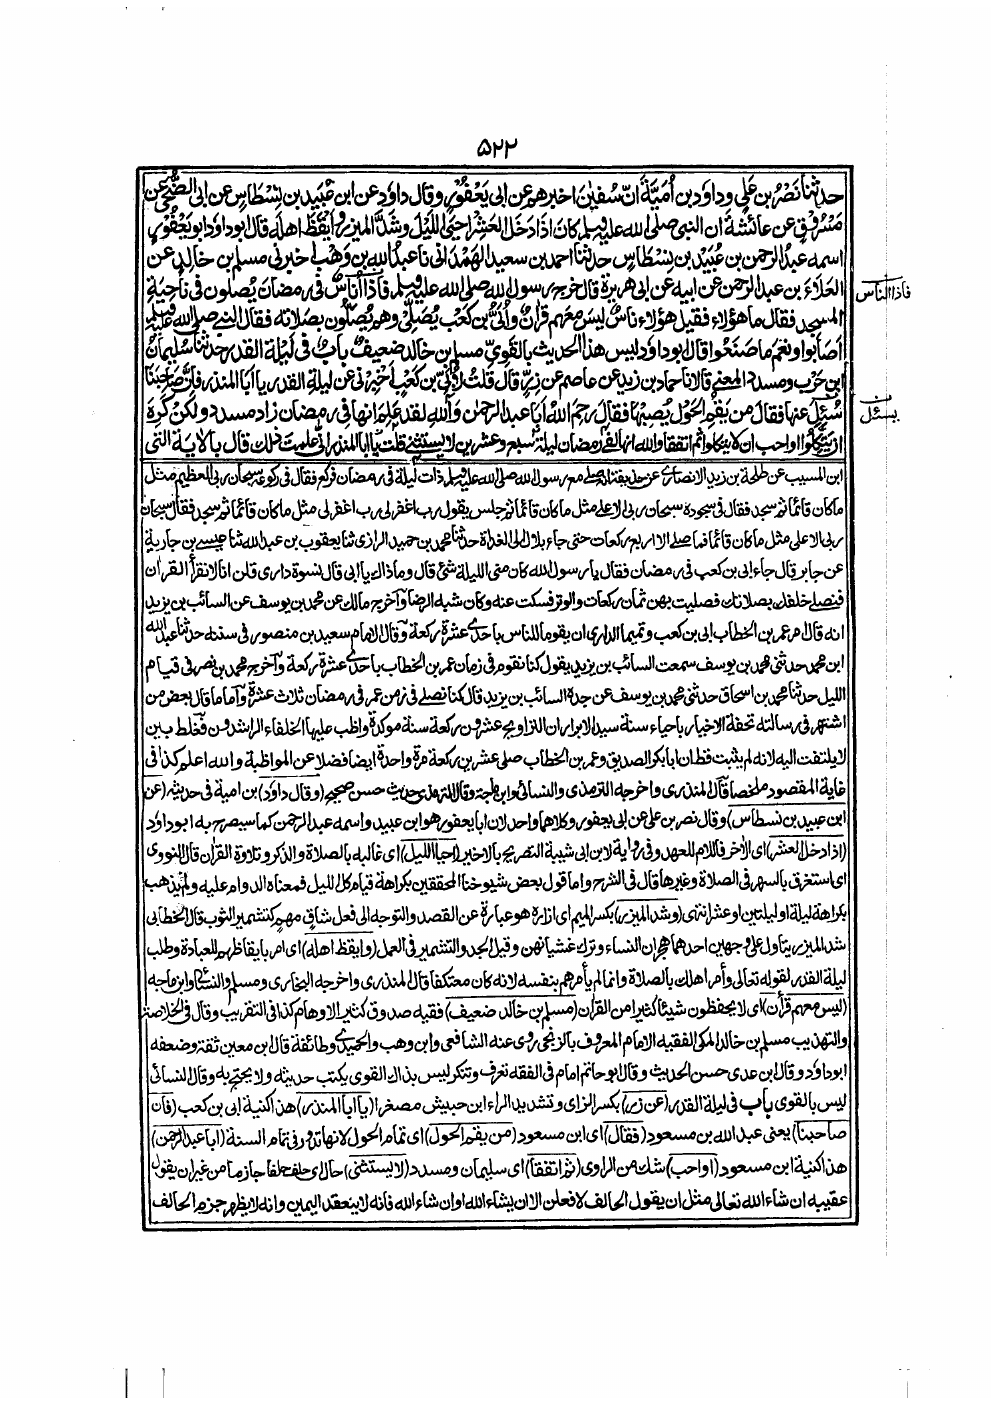 ۵۲۲
حدثنا نصر بن علی وداود بن أمیة أن سفیٰن اخبرهم عن ابی یعفور وقال داود عن ابن عبید بن نسطاس عن ابی الضحی عن
مسروق عن عائشة ان النبی صلی الله علیه وسلم کان اذا دخل العشر احیی اللیل وشد المیزر وایقظ اهله قال ابوداود ابو یعفور
اسمه عبد الرحمن بن عبید بن نسطاس حدثنا احمد بن سعید الهمدانی نا عبد الله بن وهب اخبرنی مسلم بن خالد عن
العلاء بن عبد الرحمن عن ابیه عن ابی هریرة قال خرج رسول الله صلی الله علیه وسلم فاذا أناس فی رمضان یصلون فی ناحیة
فاذا الناس
المسجد فقال ما هؤلاء فقیل هؤلاء ناس لیس معهم قرأن وأبی بن کعب یصلی وهم یصلون بصلاته فقال النبی صلی الله علیه وسلم
اصابوا ونعم ما صنعوا قال ابوداود لیس هذا الحدیث بالقوی مسلم بن خالد ضعیف باب فی لیلة القدر حدثنا سلیمان
ابن حرب ومسدد المعنی قالا نا حماد بن زید عن عاصم عن زر قال قلت لأبی بن کعب اخبرنی عن لیلة القدر یا أبا المنذر فإن صاحبنا
سئل عنها فقال من یقم الحول یصبها فقال رحم الله ابا عبد الرحمن والله لقد علم انها فی رمضان زاد مسدد ولکن کره
یسئل
ان یتکلوا او احب ان لا یتکلوا ثم اتفقا والله انها لفی رمضان لیلة سبع وعشرین لا یستثنی قلت یا ابا المنذر انی علمت ذلك قال بالایة التی
ابن المسیب عن طلحة بن زید الانصاری عن حذیفة انه صلی مع رسول الله صلی الله علیه وسلم ذات لیلة فی رمضان فرکع فقال فی رکوعه سبحان ربی العظیم مثل
ما کان قائما ثم سجد فقال فی سجوده سبحان ربی الاعلی مثل ما کان قائما ثم جلس یقول رب اغفر لی رب اغفر لی مثل ما کان قائما ثم سجد فقال سبحان
ربی الاعلی مثل ما کان قائما فما صلی الا اربع رکعات حتی جاء بلال الی الغداة حدثنا محمد بن حمید الرازی ثنا یعقوب بن عبد الله ثنا عیسی بن جاریة
عن جابر قال جاء ابی بن کعب فی رمضان فقال یا رسول الله کان منی اللیلة شئ قال وما ذاك یا ابی قال نسوة داری قلن انا لا نقرأ القرأن
فنصلی خلفك بصلاتك فصلیت بهن ثمان رکعات والوتر فسکت عنه وکان شبه الرضا وأخرج مالك عن محمد بن یوسف عن السائب بن یزید
انه قال امر عمر بن الخطاب ابی بن کعب وتمیما الداری ان یقوما للناس باحدی عشرة رکعة وقال الامام سعید بن منصور فی سننه حدثنا عبد الله
ابن محمد حدثنی محمد بن یوسف سمعت السائب بن یزید یقول کنا نقوم فی زمان عمر بن الخطاب باحدی عشرة رکعة وأخرج محمد بن نصر فی قیام
اللیل حدثنا محمد بن اسحاق حدثنی محمد بن یوسف عن جده السائب بن یزید قال کنا نصلی فی زمن عمر فی رمضان ثلاث عشرة وأما ما قال بعض من
اشتهر فی رسالته تحفة الاخیار باحیاء سنة سید الابرار ان التراویح عشرون رکعة سنة موکدة واظب علیها الخلفاء الراشدون فغلط بین
لا یلتفت الیه لانه لم یثبت قط ان ابابکر الصدیق وعمر بن الخطاب صلی عشرین رکعة مرة واحدة ایضا فضلا عن المواظبة والله اعلم کذا فی
غایة المقصود ملخصا قال المنذری واخرجه الترمذی والنسائی وابن ماجة وقال الترمذی حدیث حسن صحیح (وقال داود) بن امیة فی حدیثه (عن
ابن عبید بن نسطاس) وقال نصر بن علی عن ابی یعفور وکلاهما واحد لان ابا یعفور هو ابن عبید واسمه عبد الرحمن کما سیصرح به ابوداود
(اذا دخل العشر) ای الأخر فاللام للعهد وفی روایة لابن ابی شیبة التصریح بالاخیر (احیا اللیل) ای غالبه بالصلاة والذکر وتلاوة القرأن قال النووی
ای استغرق بالسهر فی الصلاة وغیرها قال فی الشرح واما قول بعض شیوخنا المحققین بکراهة قیام کل اللیل فمعناه الدوام علیه ولم یذهب
بکراهة لیلة او لیلتین او عشر انتهی (وشد المیزر) بکسر المیم ای ازاره هو عبارة عن القصد والتوجه الی فعل شاق مهم کتشمیر الثوب قال الخطابی
شد المیزر یتاول علی وجهین احدهما هجران النساء وترك غشیانهن وقیل الجد والتشمیر فی العمل (وایقظ اهله) ای امر بایقاظهم للعبادة وطلب
لیلة القدر لقوله تعالی وأمر اهلك بالصلاة وانما لم یأمرهم بنفسه لانه کان معتکفا قال المنذری واخرجه البخاری ومسلم والنسائی وابن ماجه
(لیس معهم قرأن) ای لا یحفظون شیئا کثیرا من القرأن (مسلم بن خالد ضعیف) فقیه صدوق کثیر الاوهام کذا فی التقریب وقال فی الخلاصة
والتهذیب مسلم بن خالد المکی الفقیه الامام المعروف بالزنجی روی عنه الشافعی وابن وهب والحمیدی وطائفة قال ابن معین ثقة وضعفه
ابوداود وقال ابن عدی حسن الحدیث وقال ابو حاتم امام فی الفقه تعرف وتنکر لیس بذاك القوی یکتب حدیثه ولا یحتج به وقال النسائی
لیس بالقوی باب فی لیلة القدر (عن زر) بکسر الزای وتشدید الراء ابن حبیش مصغرا (یا ابا المنذر) هذا کنیة ابی بن کعب (فان
صاحبنا) یعنی عبد الله بن مسعود (فقال) ای ابن مسعود (من یقم الحول) ای تمام الحول لانها تدور فی تمام السنة (ابا عبد الرحمن)
هذا کنیة ابن مسعود (او احب) شك من الراوی (ثم اتفقا) ای سلیمان ومسدد (لا یستثنی) حال ای حلف حلفا جازما من غیران یقول
عقیبه ان شاء الله تعالی مثل ان یقول الحالف لافعلن الا ان یشاء الله او ان شاء الله فانه لا ینعقد الیمین وانه لا یظهر جزم الحالف